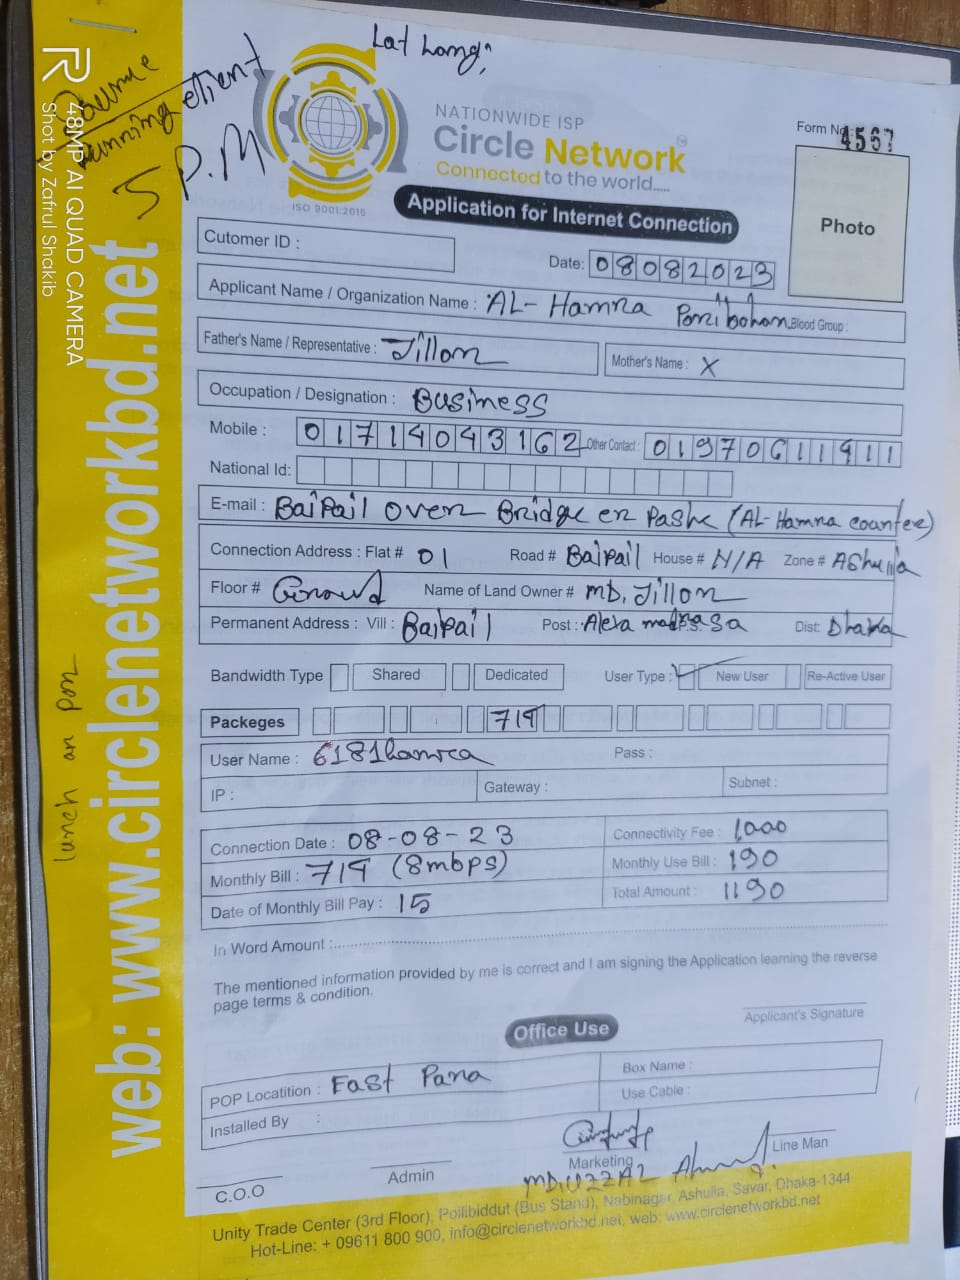 Lat Long;
running client
5 P.M
48MP AI QUAD CAMERA
Shot by Zafrul Shakib
NATIONWIDE ISP
Circle Network
Connected to the world.....
ISO 9001:2015
Form No: 4567
Application for Internet Connection
Photo
Cutomer ID :
Date: 08082023
Applicant Name / Organization Name : AL-Hamra Poribohon Blood Group :
Father's Name / Representative : Jillon Mother's Name : X
Occupation / Designation : Business
Mobile : 01714043162 Other Contact : 01970611911
National Id:
E-mail : Baipail over Bridge er Pashe (AL-Hamra counter)
Connection Address : Flat # 01 Road # Baipail House # N/A Zone # AShulia
Floor # Ground Name of Land Owner # MD. Jillon
Permanent Address : Vill : Baipail Post : Alexa madrasa Dist: Dhaka
Bandwidth Type Shared Dedicated User Type : New User Re-Active User
Packeges 719
User Name : Pass :
IP : Gateway : Subnet :
Connection Date : 08-08-23 Connectivity Fee : 1,000
Monthly Bill : 719 (8mbps) Monthly Use Bill : 190
Date of Monthly Bill Pay : 15 Total Amount : 1190
In Word Amount :
The mentioned information provided by me is correct and I am signing the Application learning the reverse
page terms & condition.
Applicant's Signature
Office Use
POP Locatition : East Para Box Name :
Installed By : Use Cable :
C.O.O Admin Marketing Line Man
MD. UZZAL Ahmed
Unity Trade Center (3rd Floor), Poilibiddut (Bus Stand), Nabinagar, Ashulia, Savar, Dhaka-1344
Hot-Line: + 09611 800 900, info@circlenetworkbd.net, web: www.circlenetworkbd.net
web: www.circlenetworkbd.net